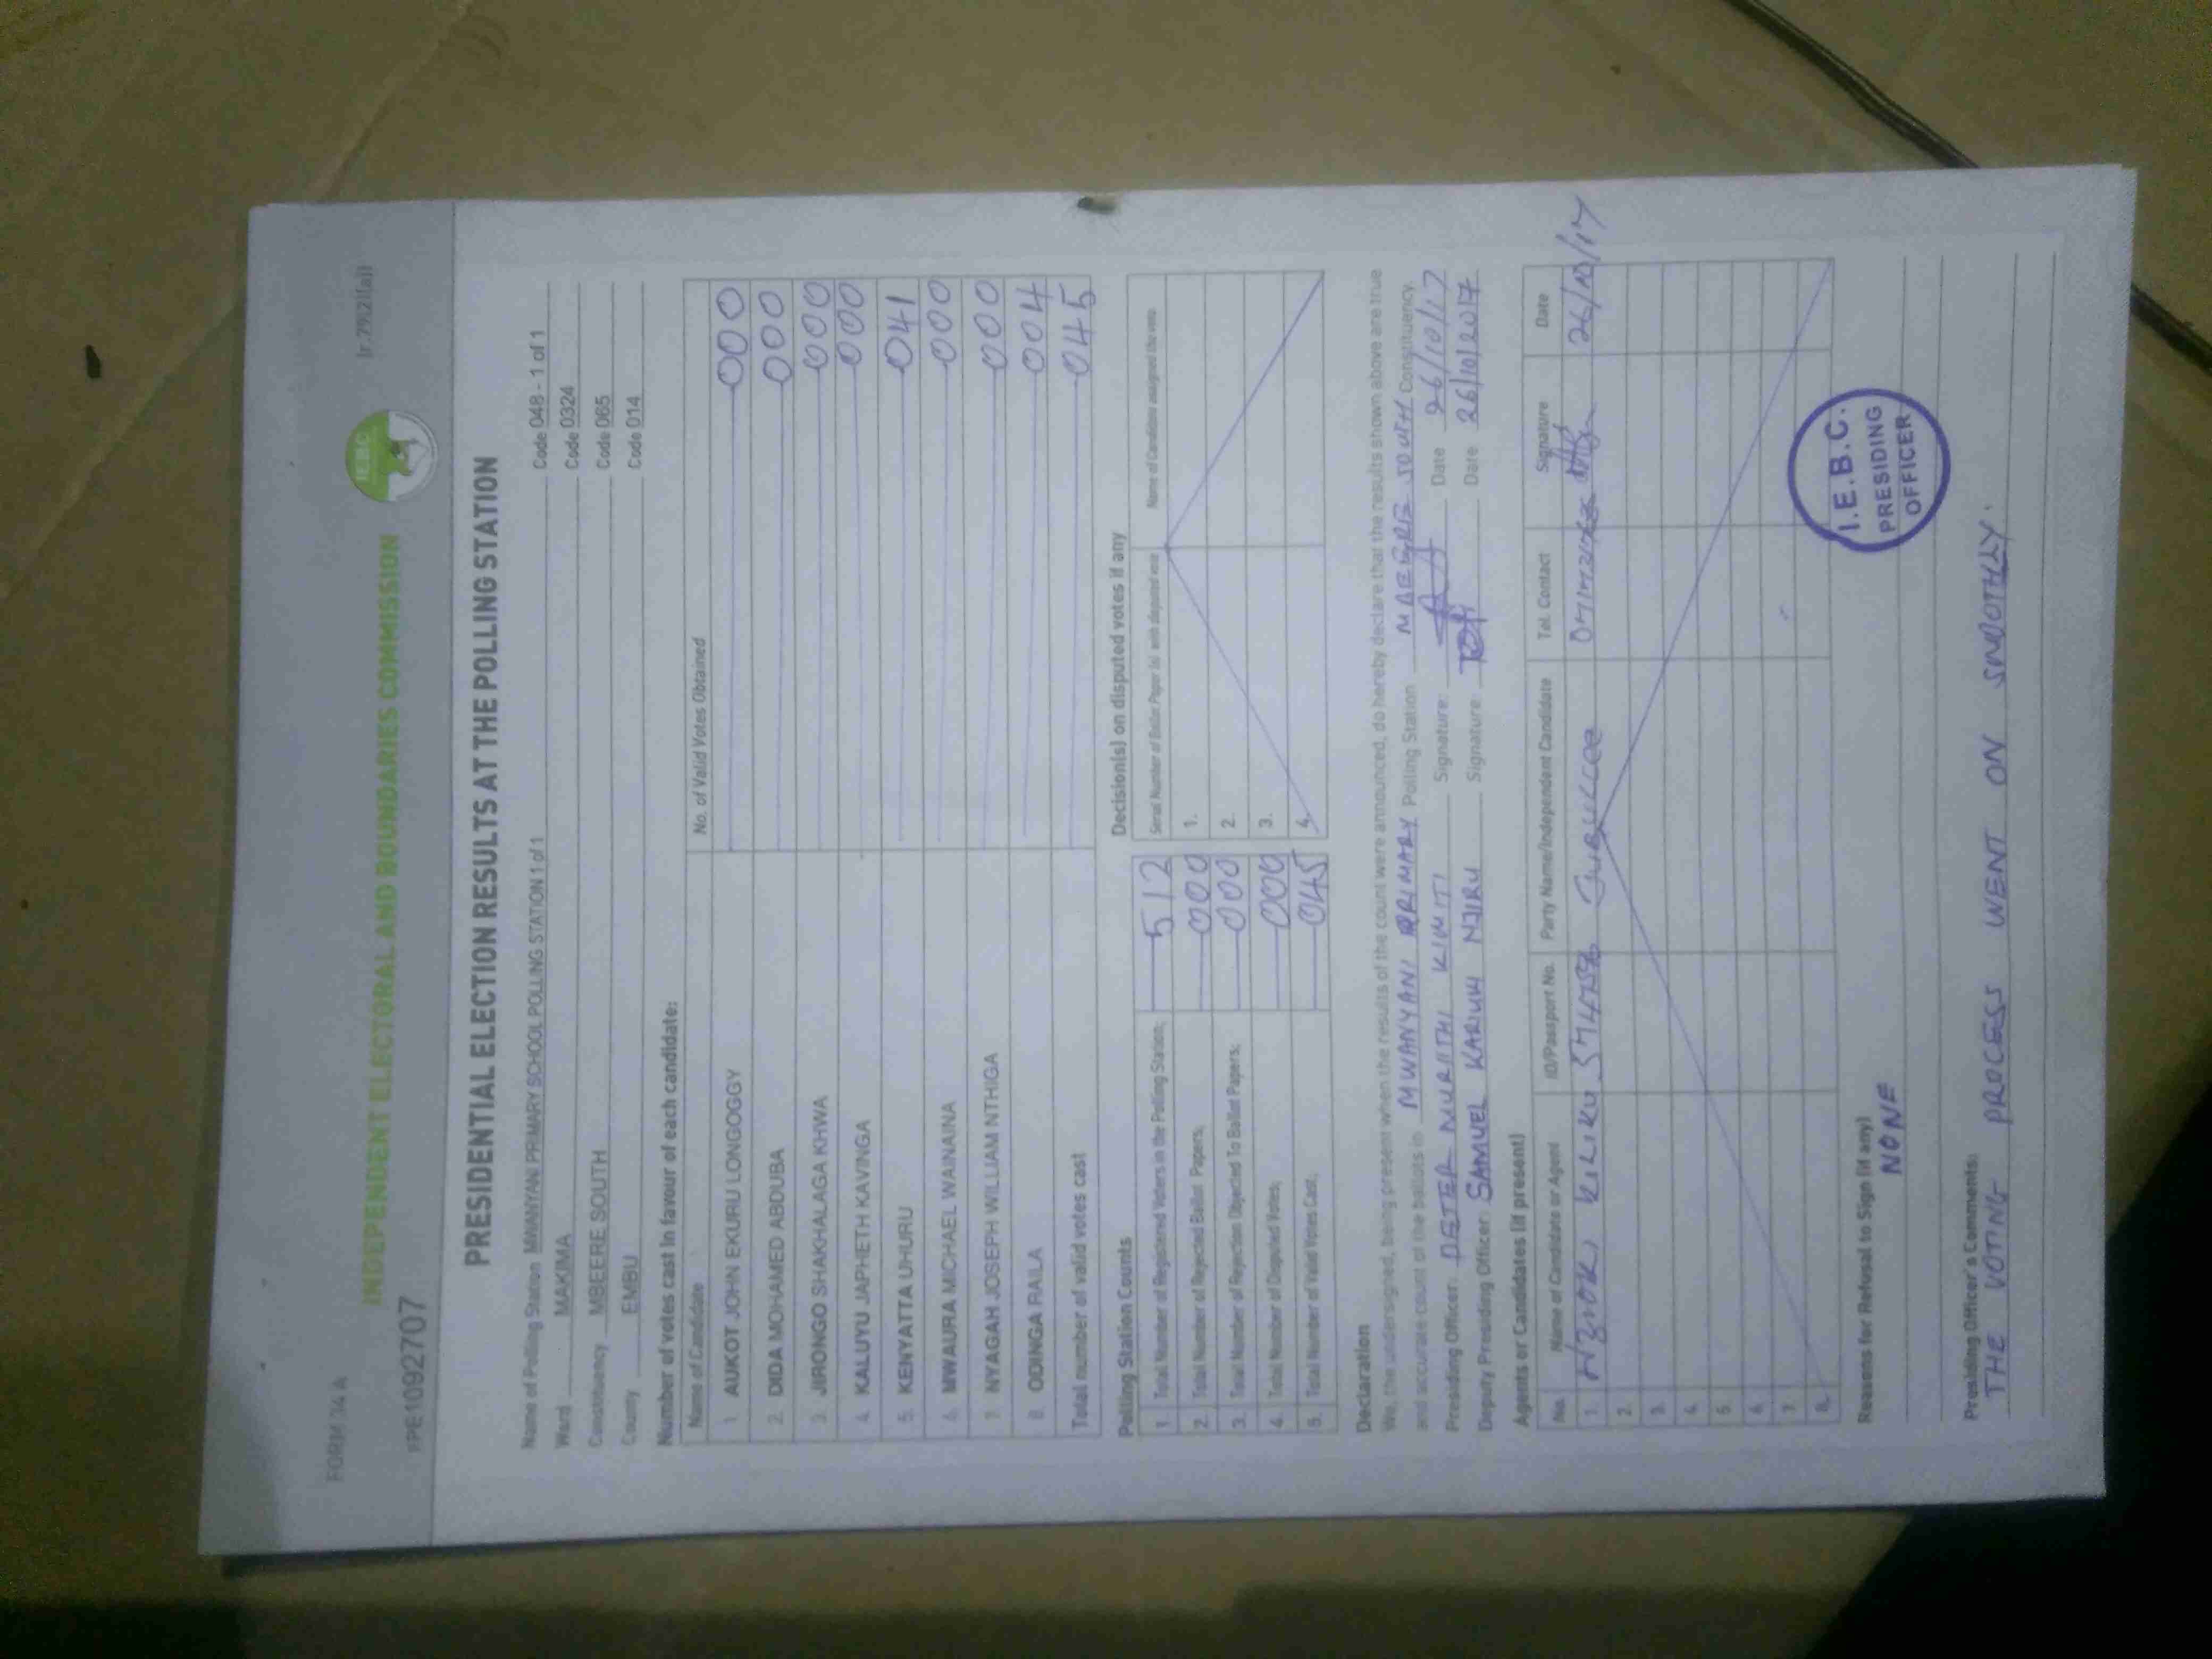 FORM 34 A
(r.79(2)(a))
INDEPENDENT ELECTORAL AND BOUNDARIES COMMISSION
I.E.B.C
PRESIDENTIAL ELECTION RESULTS AT THE POLLING STATION
Name of Polling Station MWANYANI PRIMARY SCHOOL POLLING STATION 1 of 1 Code 048 - 1 of 1
Ward MAKIMA Code 0324
Constituency MBEERE SOUTH Code 065
County EMBU Code 014
Number of votes cast in favour of each candidate:
Name of Candidate No. of Valid Votes Obtained
1 AUKOT JOHN EKURU LONGOGGY 000
2. DIDA MOHAMED ABDUBA 000
3. JIRONGO SHAKHALAGA KHWA 000
4. KALUYU JAPHETH KAVINGA 000
5. KENYATTA UHURU 041
6. MWAURA MICHAEL WAINAINA 000
7. NYAGAH JOSEPH WILLIAM NTHIGA 000
8. ODINGA RAILA 004
Total number of valid votes cast 045
Polling Station Counts
1 Total Number of Registered Voters in the Polling Station; 512
2. Total Number of Rejected Ballot Papers; 000
3. Total Number of Rejection Objected To Ballot Papers; 000
4. Total Number of Disputed Votes; 000
5. Total Number of Valid Votes Cast; 045
Decision(s) on disputed votes if any
Serial Number of Ballot Paper (s) with disputed vote Name of Candidate assigned the vote
1.
2.
3.
4.
Declaration
We, the undersigned, being present when the results of the count were announced, do hereby declare that the results shown above are true
and accurate count of the ballots in MWANYANI PRIMARY Polling Station MBEERE SOUTH Constituency.
Presiding Officer: PETER MURIITHI KIMITI Signature: Date 26/10/17
Deputy Presiding Officer: SAMUEL KARIUKI NJIRU Signature: Date 26/10/2017
Agents or Candidates (if present)
No. Name of Candidate or Agent ID/Passport No. Party Name/Independent Candidate Tel. Contact Signature Date
1. KILIKU 26/10/17
2.
3.
4.
5.
6.
7.
8.
I.E.B.C.
PRESIDING
OFFICER
Reasons for Refusal to Sign (if any)
NONE
Presiding Officer's Comments:
THE VOTING PROCESS WENT ON SMOOTHLY.